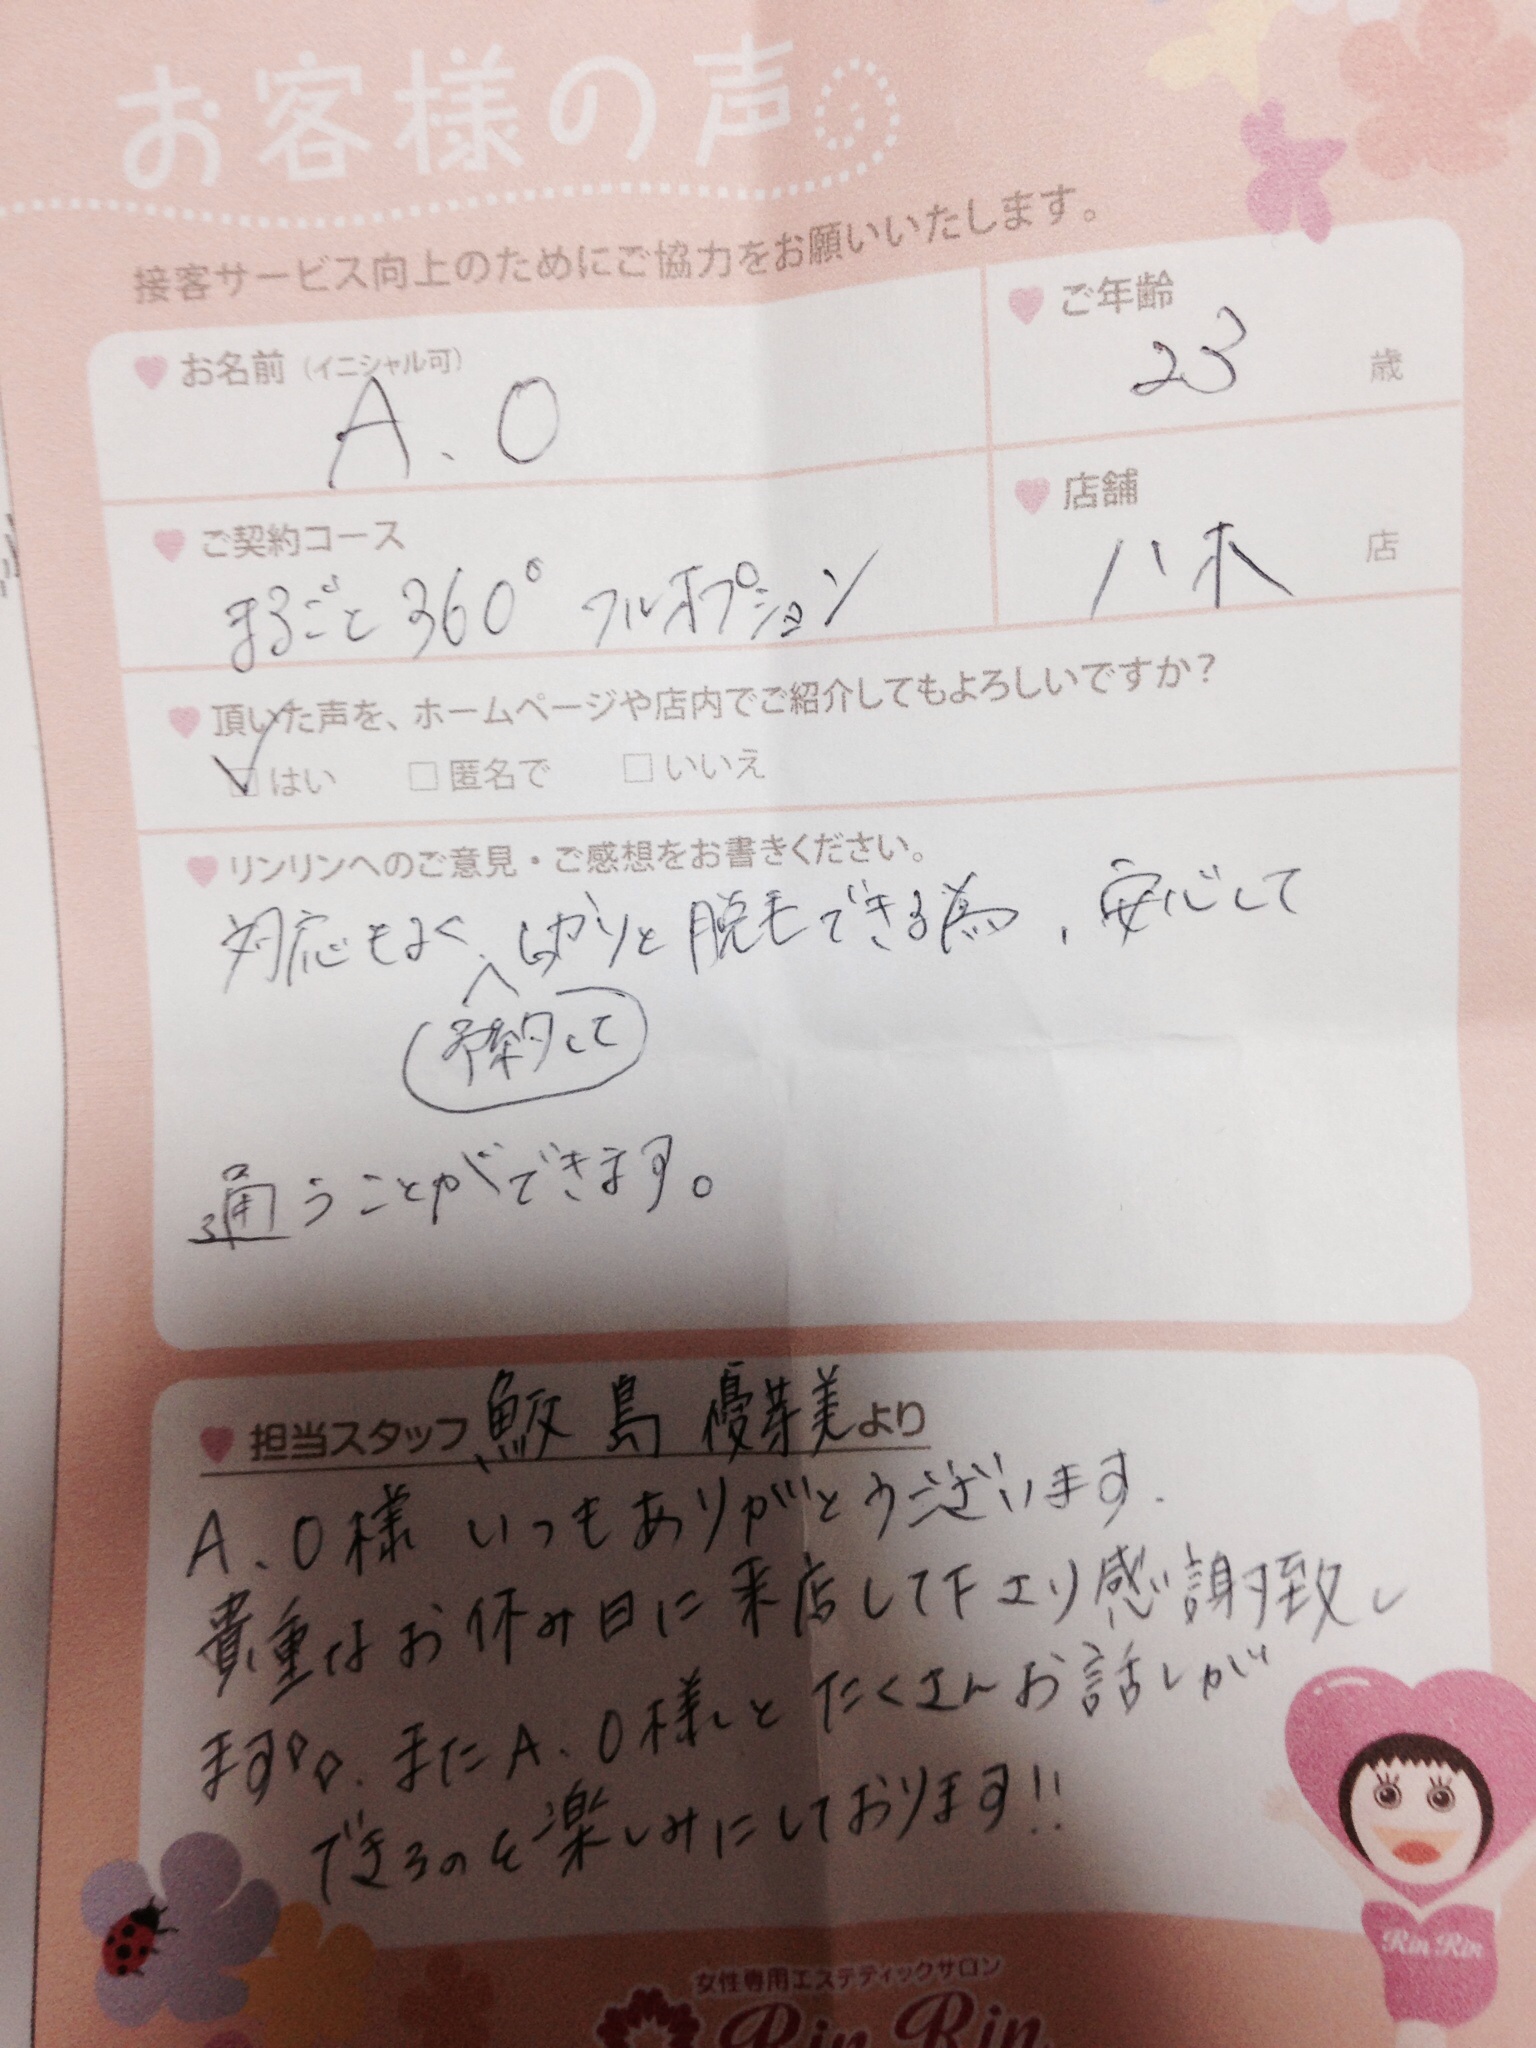 お客様の声
接客サービス向上のためにご協力をお願いいたします。
お名前(イニシャル可)
A.O
ご年齢
23 歳
ご契約コース
まるごと360°フルオプション
店舗
八木 店
頂いた声を、ホームページや店内でご紹介してもよろしいですか？
はい 匿名で いいえ
リンリンへのご意見・ご感想をお書きください。
対応もよく、しっかりと脱毛できる為、安心して
予約して
通うことができます。
担当スタッフ 鮫島 優芽美より
A.O様 いつもありがとうございます.
貴重なお休み日に来店して下さり感謝致し
ます. またA.O様と たくさんお話しが
できるのを楽しみにしております!!
Rin Rin
女性専用エステティックサロン
Rin Rin